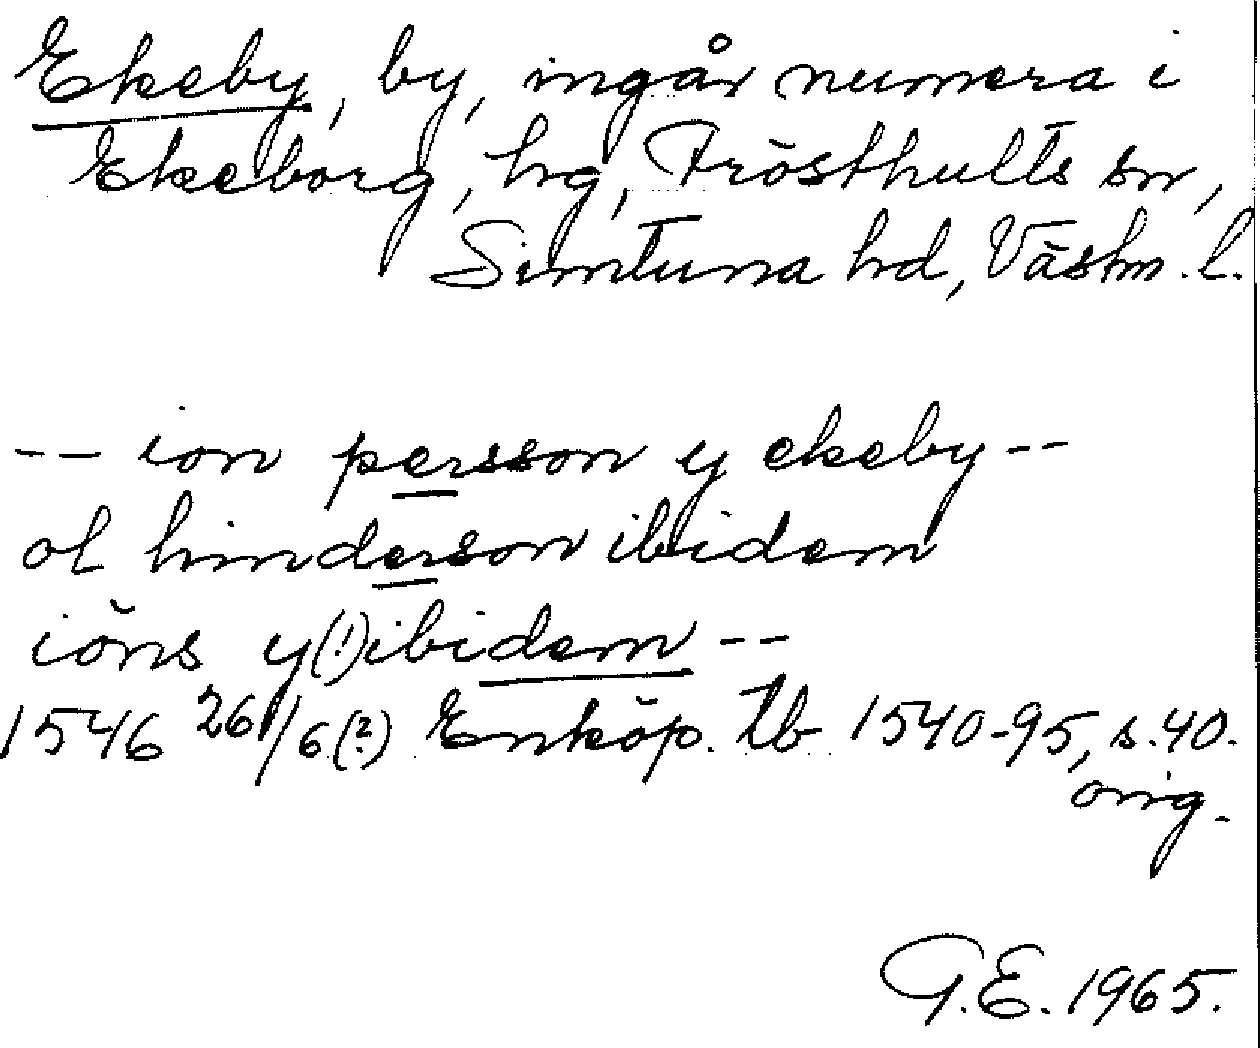 Ekeby, by, ingår numera i
Ekeborg, hg, Frösthults sn,
Simtuna hd, Västm. l.
-- ion persson y ekeby --
ol hinderson ibidem
iöns y(!) ibidem --
1546 26/6(?) Enköp. tb 1540-95, s. 40.
orig.
G.E. 1965.